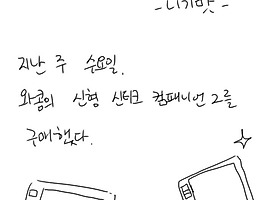 - 니기맛 -
지난 주 수요일.
와콤의 신형 신티크 컴패니언 2를
구매했다.